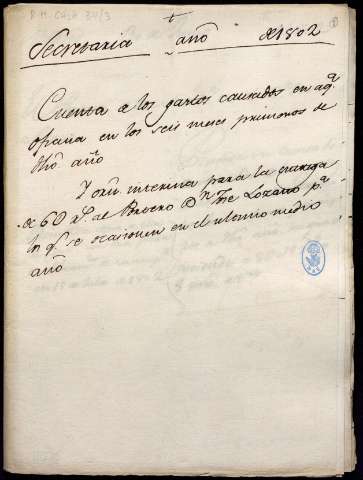 R.M. Caja 34/3
Secretaria año de 1802
Cuenta a los gastos causados en aqª
oficina en los seis meses primeros de
dho año
Y orn interina para la entrega
de 60 rs al Portero Dn José Lozano pª
los qe se ocasionen en el ultimo medio
año